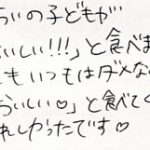 らいの子どもが
おいしい!!!」と食べま
もいつもはダメな
おいしい♡」と食べてく
れしかったです♡